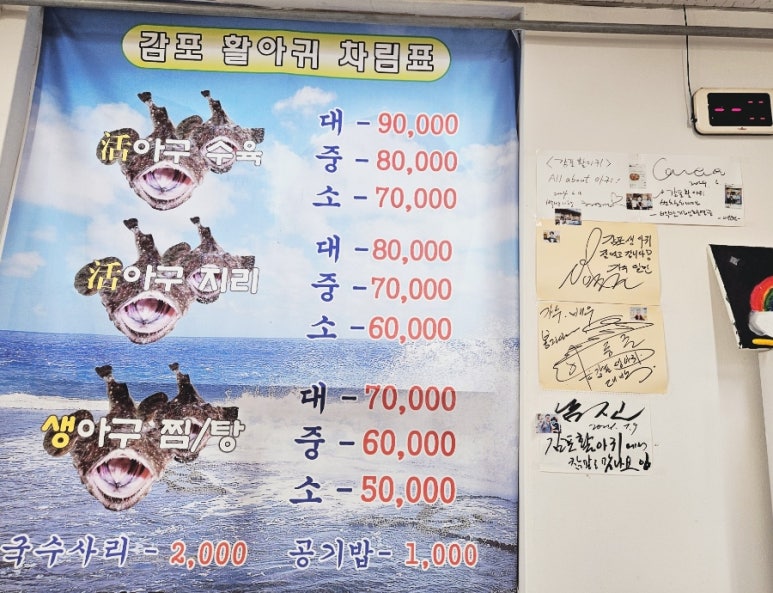 감포 활아귀 차림표
活아구 수육
대 - 90,000
중 - 80,000
소 - 70,000
活아구 지리
대 - 80,000
중 - 70,000
소 - 60,000
생아구 찜/탕
대 - 70,000
중 - 60,000
소 - 50,000
국수사리 - 2,000 공기밥 - 1,000
<감포활아귀>
All about 아귀!
감포활아귀
감포 생 아귀
가수 . 배우
감포활아귀에서